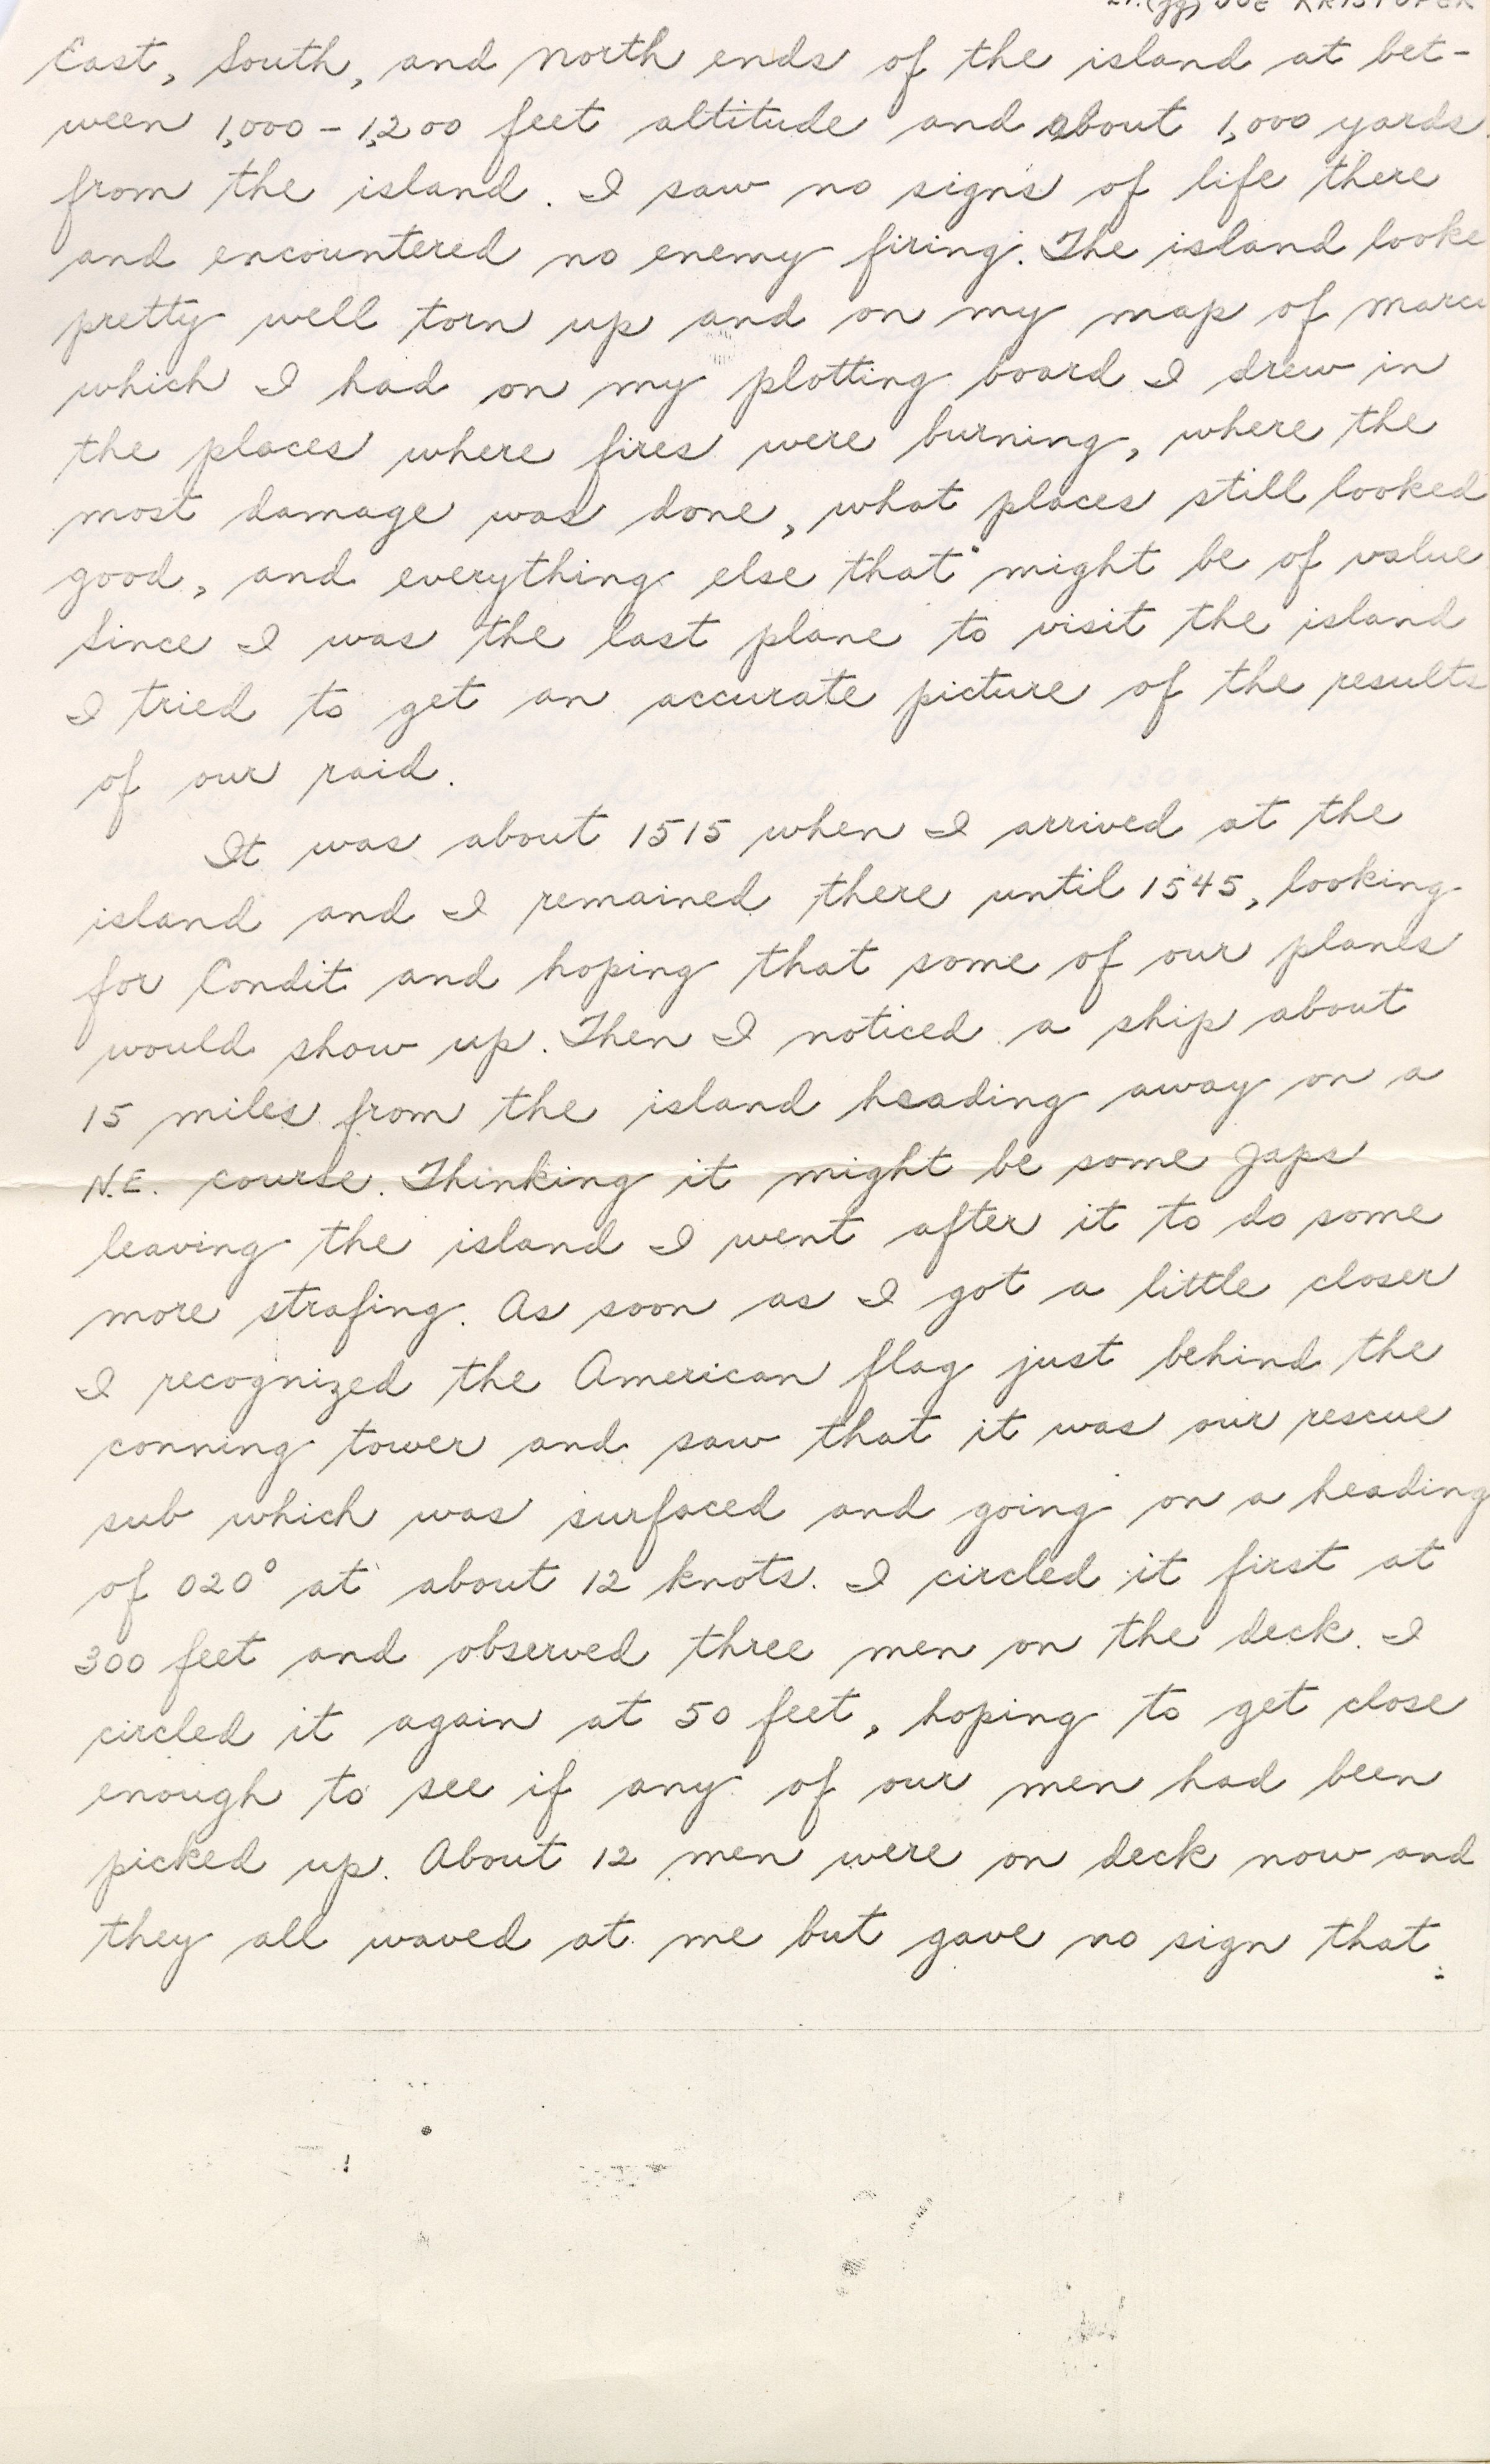 Lt.(jg) JOE KRISTUFEK
East, South, and North ends of the island at bet-
ween 1,000 - 1,200 feet altitude and about 1,000 yards
from the island. I saw no signs of life there
and encountered no enemy firing. The island looke
pretty well torn up and on my map of Marcu
which I had on my plotting board I drew in
the places where fires were burning, where the
most damage was done, what places still looked
good, and everything else that might be of value
Since I was the last plane to visit the island
I tried to get an accurate picture of the results
of our raid.
It was about 1515 when I arrived at the
island and I remained there until 1545, looking
for Condit and hoping that some of our planes
would show up. Then I noticed a ship about
15 miles from the island heading away on a
N.E. course. Thinking it might be some Japs
leaving the island I went after it to do some
more strafing. As soon as I got a little closer
I recognized the American flag just behind the
conning tower and saw that it was our rescue
sub which was surfaced and going on a heading
of 020° at about 12 knots. I circled it first at
300 feet and observed three men on the deck. I
circled it again at 50 feet, hoping to get close
enough to see if any of our men had been
picked up. About 12 men were on deck now and
they all waved at me but gave no sign that